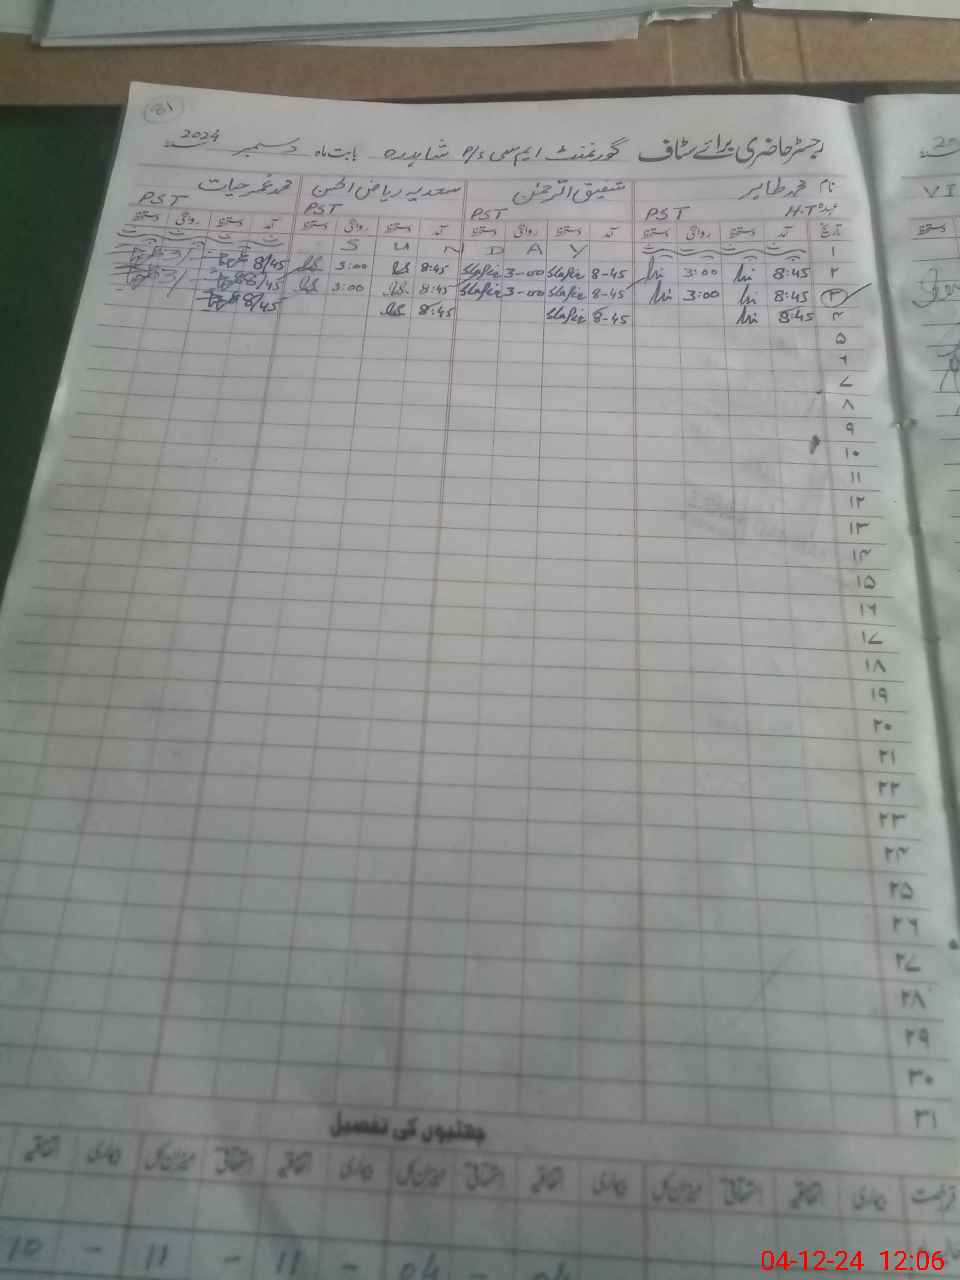 81
رجسٹر حاضری برائے سٹاف گورنمنٹ ایم سی P/S شاہدرہ بابت ماہ دسمبر 2024
نام محمد طاہر شفیق الرحمٰن سعدیہ ریاض الحسن محمد عمر حیات
عہدہ H.T PST PST PST PST
تاریخ آمد دستخط روانگی دستخط آمد دستخط روانگی دستخط آمد دستخط روانگی دستخط آمد دستخط روانگی دستخط
۱ S U N D A Y
۲ 8:45 3:00 8-45 Shafiq 3-00 Shafiq 8:45 3:00 8/45
۳ 8:45 3:00 8-45 Shafiq 3-00 Shafiq 8:45 3:00 8/45
۴ 8:45 8-45 Shafiq 8:45 8/45
۵
۶
۷
۸
۹
۱۰
۱۱
۱۲
۱۳
۱۴
۱۵
۱۶
۱۷
۱۸
۱۹
۲۰
۲۱
۲۲
۲۳
۲۴
۲۵
۲۶
۲۷
۲۸
۲۹
۳۰
۳۱
چھٹیوں کی تفصیل
بیماری اتفاقیہ استحقاقی میزان کل بیماری اتفاقیہ استحقاقی میزان کل بیماری اتفاقیہ استحقاقی میزان کل بیماری اتفاقیہ
04 - 04 - 11 - 11 - 10
VI
04-12-24 12:06